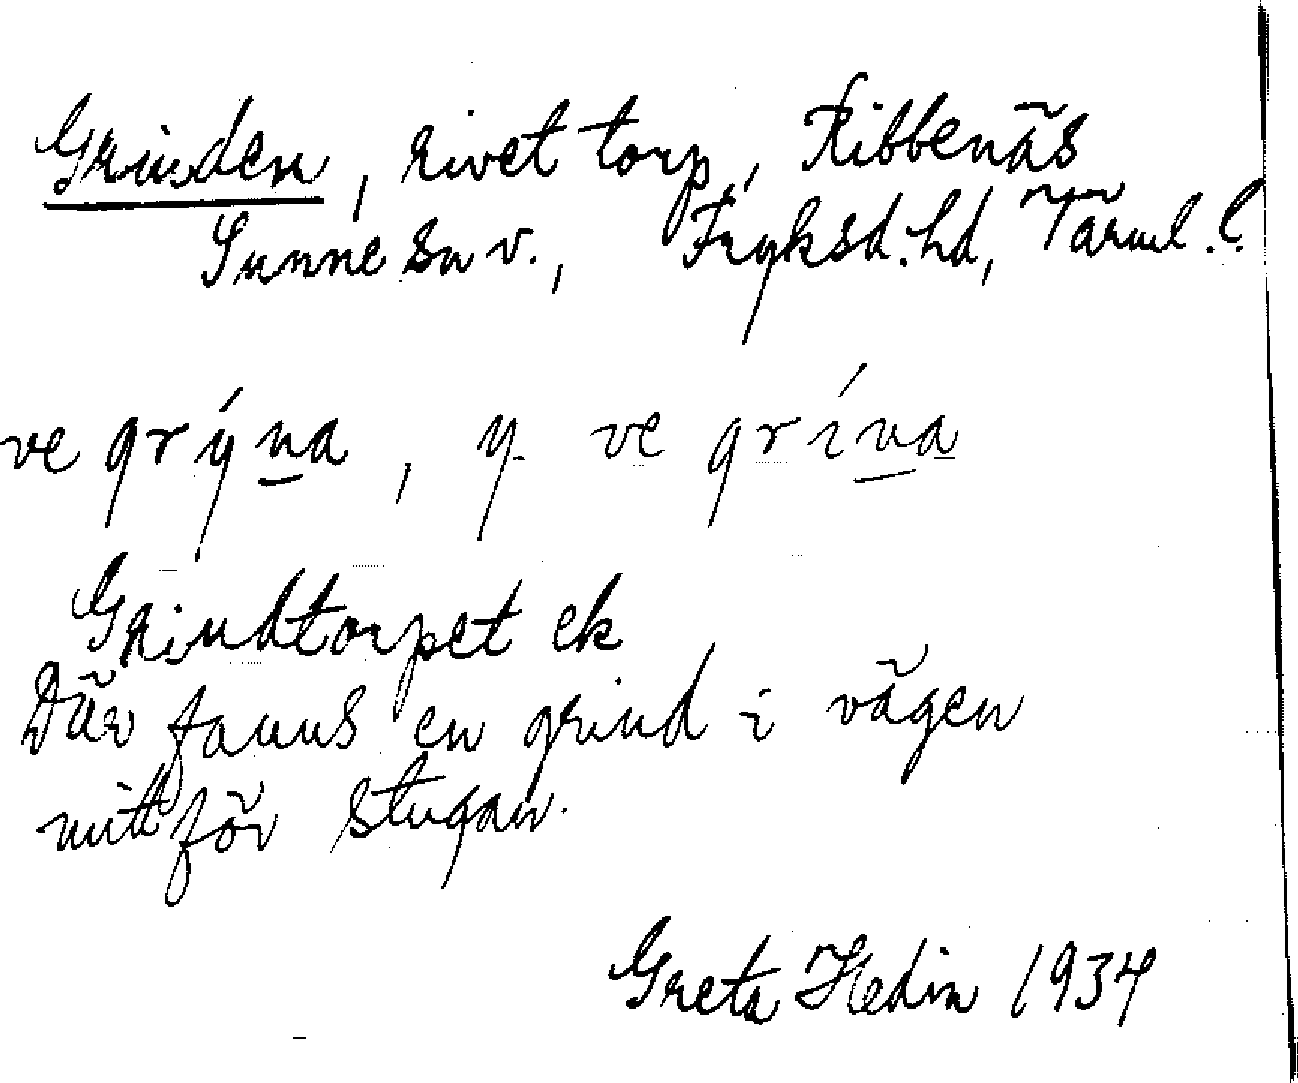 Grinden, rivet torp, Ribbenäs
Sunne sn v., Fryksd. hd, Värml. l.
ve grýna, y. ve grína
Grindtorpet ek
Där fanns en grind i vägen
mitt för stugan.
Greta Hedin 1934